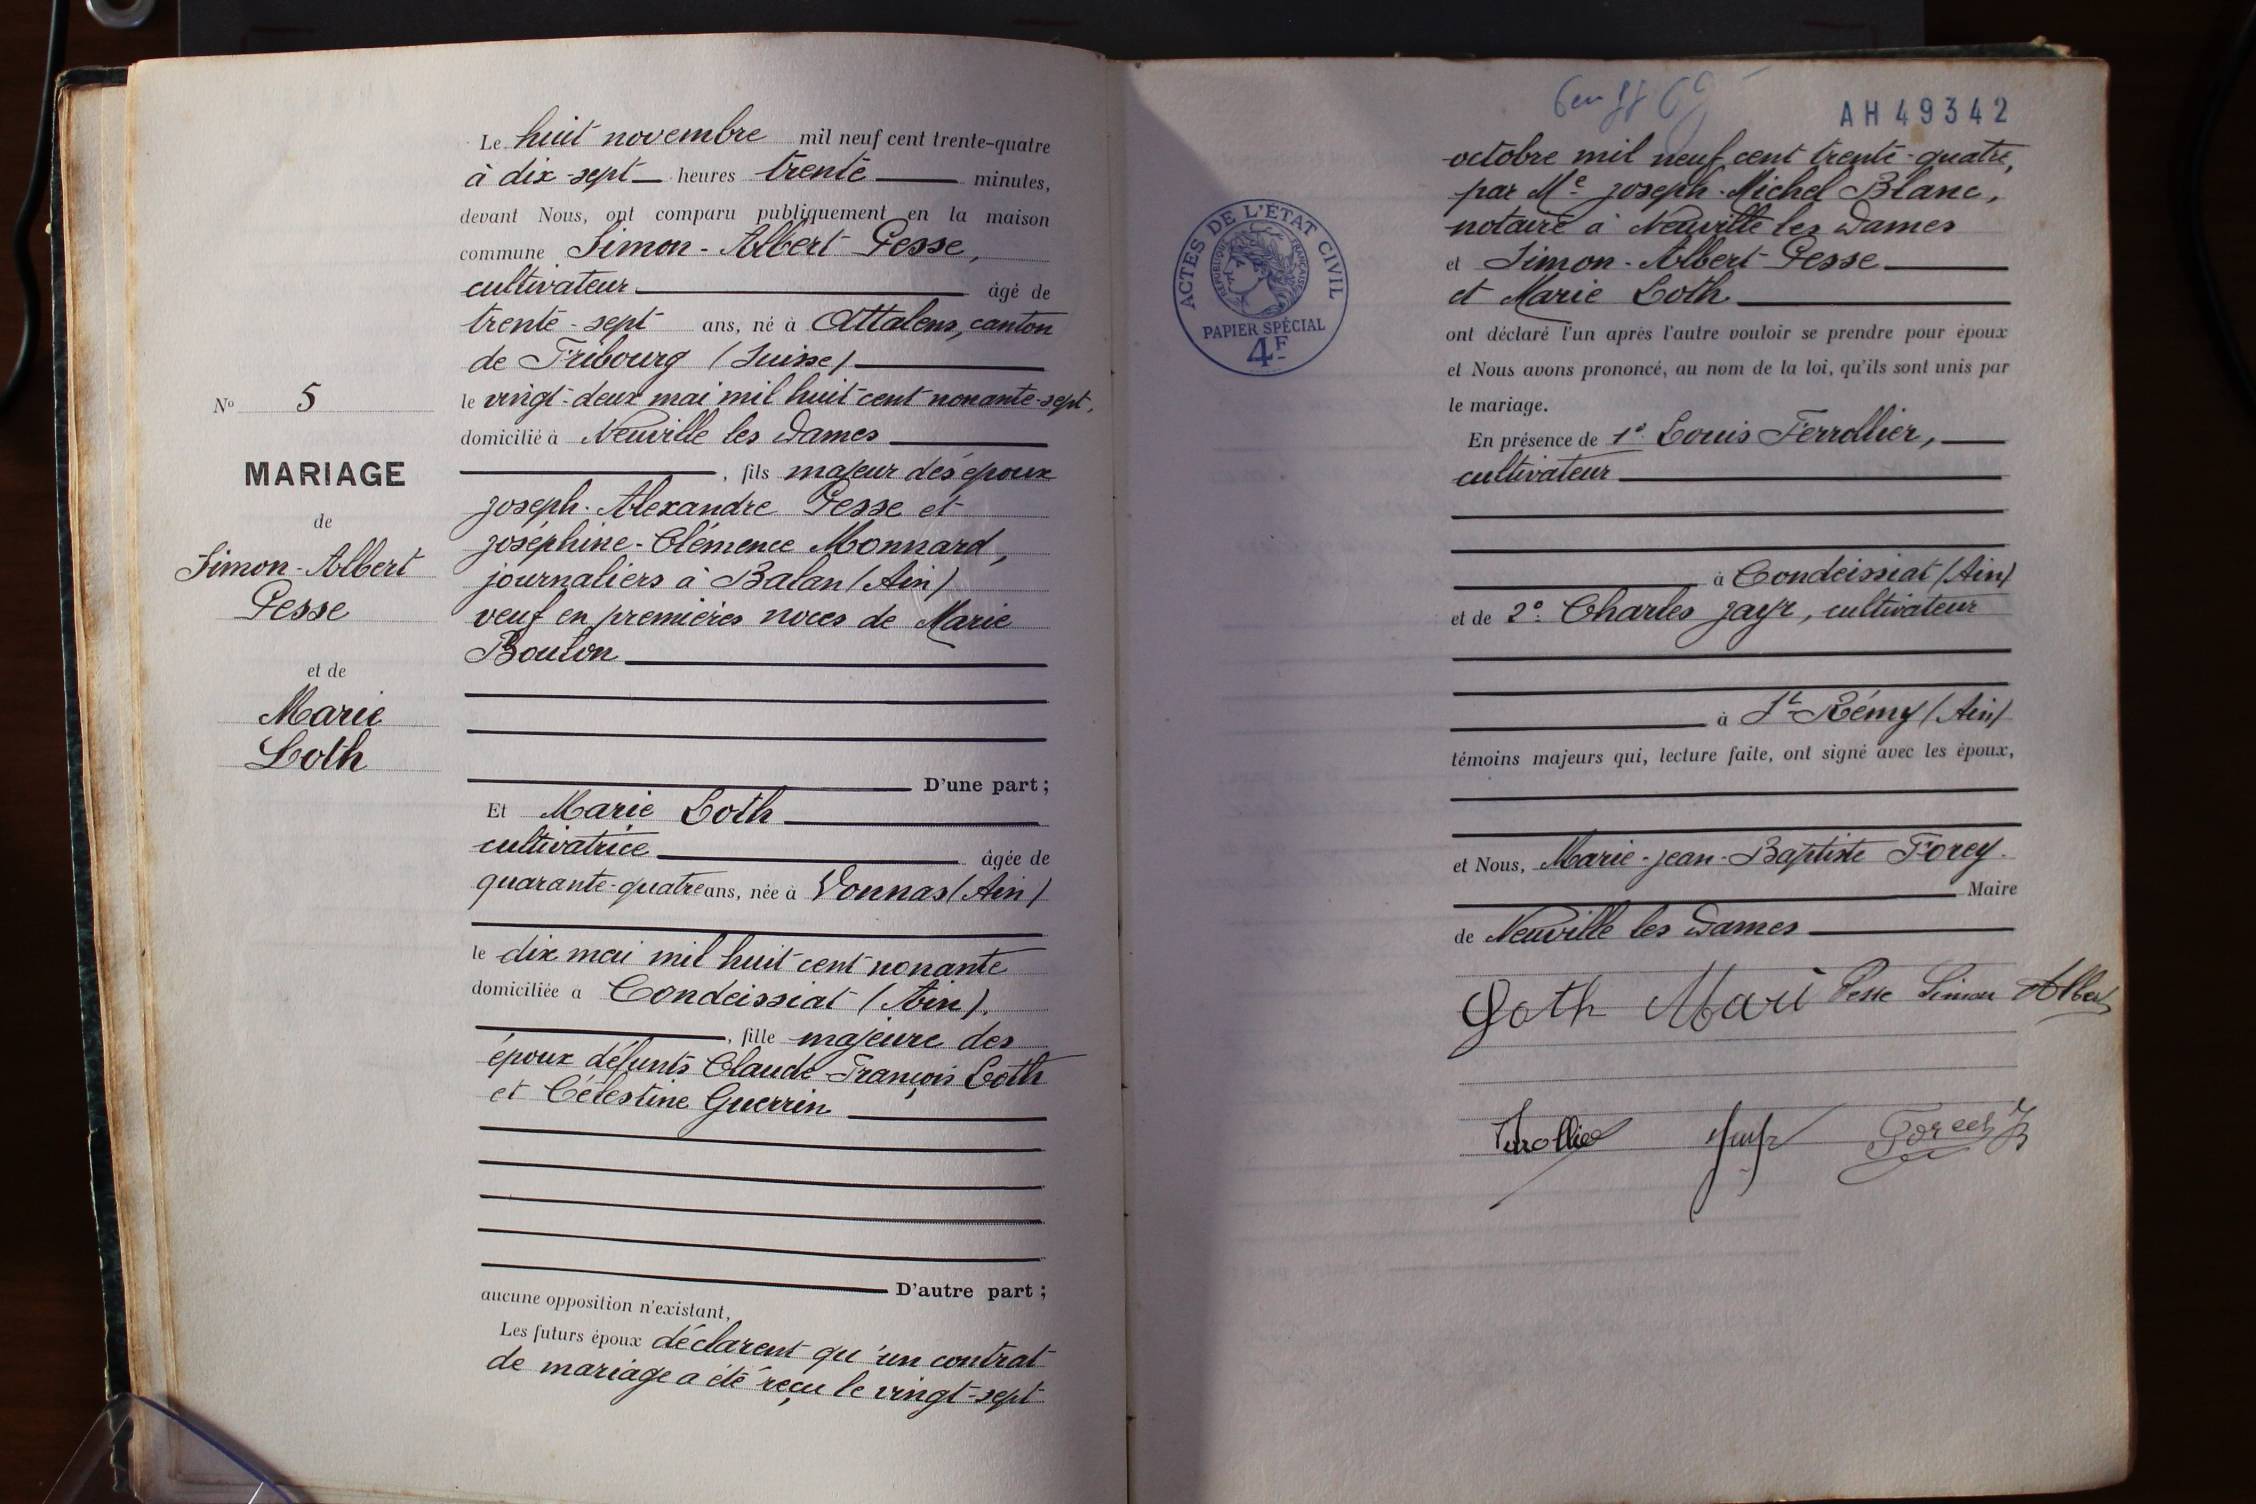 Le huit novembre mil neuf cent trente-quatre
à dix-sept heures trente minutes,
devant Nous, ont comparu publiquement en la maison
commune Simon-Albert Pesse,
cultivateur âgé de
trente-sept ans, né à Attalens, canton
de Fribourg (Suisse)
le vingt-deux mai mil huit cent nonante-sept,
domicilié à Neuville les Dames
, fils majeur des époux
Joseph-Alexandre Pesse et
Joséphine-Clémence Monnard,
journaliers à Balan (Ain)
veuf en premières noces de Marie
Bouton
D'une part ;
Et Marie Goth
cultivatrice âgée de
quarante-quatre ans, née à Vonnas (Ain)
le dix mai mil huit cent nonante
domiciliée à Condeissiat (Ain).
, fille majeure des
époux défunts Claude-François Goth
et Célestine Guerrin
D'autre part ;
aucune opposition n'existant,
Les futurs époux déclarent qu'un contrat
de mariage a été reçu le vingt-sept
No 5
MARIAGE
de
Simon-Albert
Pesse
et de
Marie
Goth
AH 49342
octobre mil neuf cent trente-quatre,
par Me Joseph-Michel Blanc,
notaire à Neuville les Dames
et Simon-Albert Pesse
et Marie Goth
ont déclaré l'un après l'autre vouloir se prendre pour époux
et Nous avons prononcé, au nom de la loi, qu'ils sont unis par
le mariage.
En présence de 1º Louis Ferrollier,
cultivateur
à Condeissiat (Ain)
et de 2º Charles Jayr, cultivateur
à St Rémy (Ain)
témoins majeurs qui, lecture faite, ont signé avec les époux,
et Nous, Marie-Jean-Baptiste Forey
Maire
de Neuville les Dames
Goth Mari Pesse Simon Albert
Jayr
ACTES DE L'ETAT CIVIL
REPUBLIQUE FRANÇAISE
PAPIER SPÉCIAL
4F